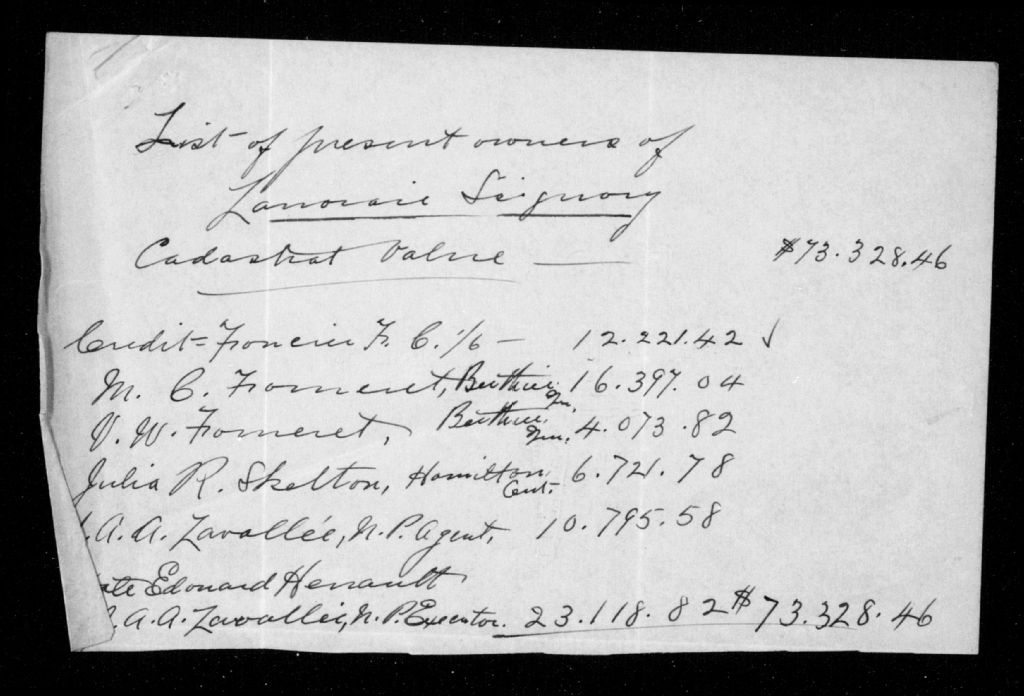 List of present owners of
Lanoraie Seignory
Cadastral Value — $73.328.46
Credit=Foncier F. C. 1/6 — 12.221.42 ✓
M. C. Fomeret, Berthier Qu. 16.397.04
V. W. Fomeret, Berthier Qu. 4.073.82
Julia R. Skelton, Hamilton Ont. 6.721.78
A. A. Lavallée, N.P. Agent, 10.795.58
Edouard Henault
A. A. Lavallée, N.P. Executor. 23.118.82 $73.328.46